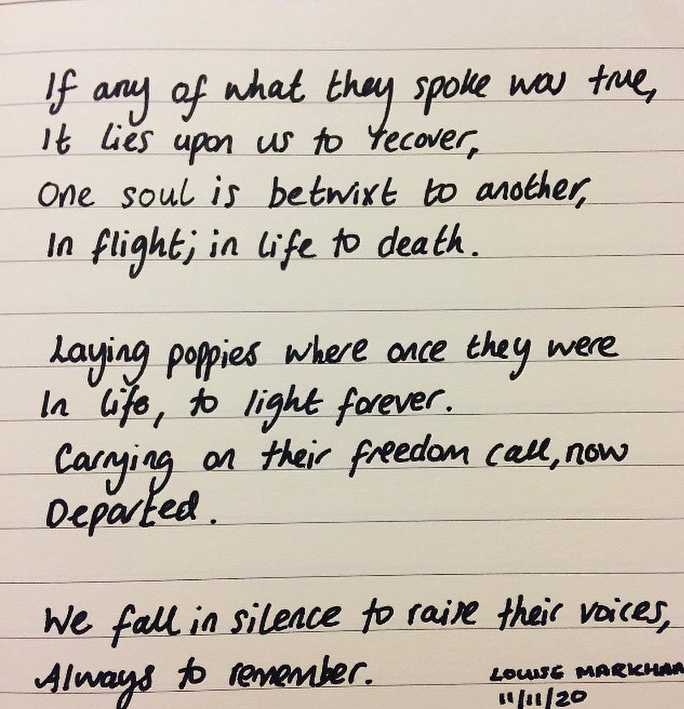 If any of what they spoke was true,
It lies upon us to recover,
One soul is betwixt to another,
In flight; in life to death.
Laying poppies where once they were
In life, to light forever.
Carrying on their freedom call, now
Departed.
We fall in silence to raise their voices,
Always to remember.
LOUISE MARKHAM
11/11/20